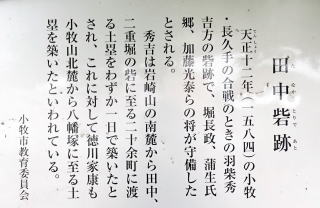 田中砦跡
たなかとりであと
天正十二年(一五八四)の小牧
てんしょう
・長久手の合戦のときの羽柴秀
吉方の砦跡で、堀長政、蒲生氏
郷、加藤光泰らの将が守備した
とされる。
秀吉は岩崎山の南麓から田中、
二重堀の砦に至る二十余町に渡
る土塁をわずか一日で築いたと
され、これに対して徳川家康も
小牧山北麓から八幡塚に至る土
塁を築いたといわれている。
小牧市教育委員会